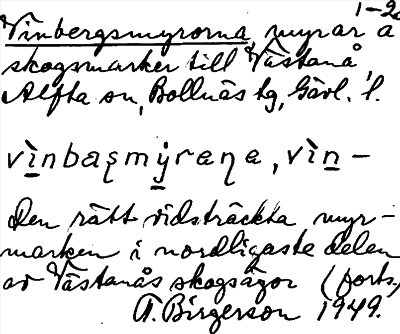 1-2.
Vinbergsmyrorna, myrar å
skogsmarker till Västanå,
Alfta sn, Bollnäs tg, Gävl. l.
vìnbaʂmýraɳa, vìn-
Den rätt vidsträckta myr-
marken i nordligaste delen
av Västanås skogsägor (forts.)
A. Birgerson 1949.